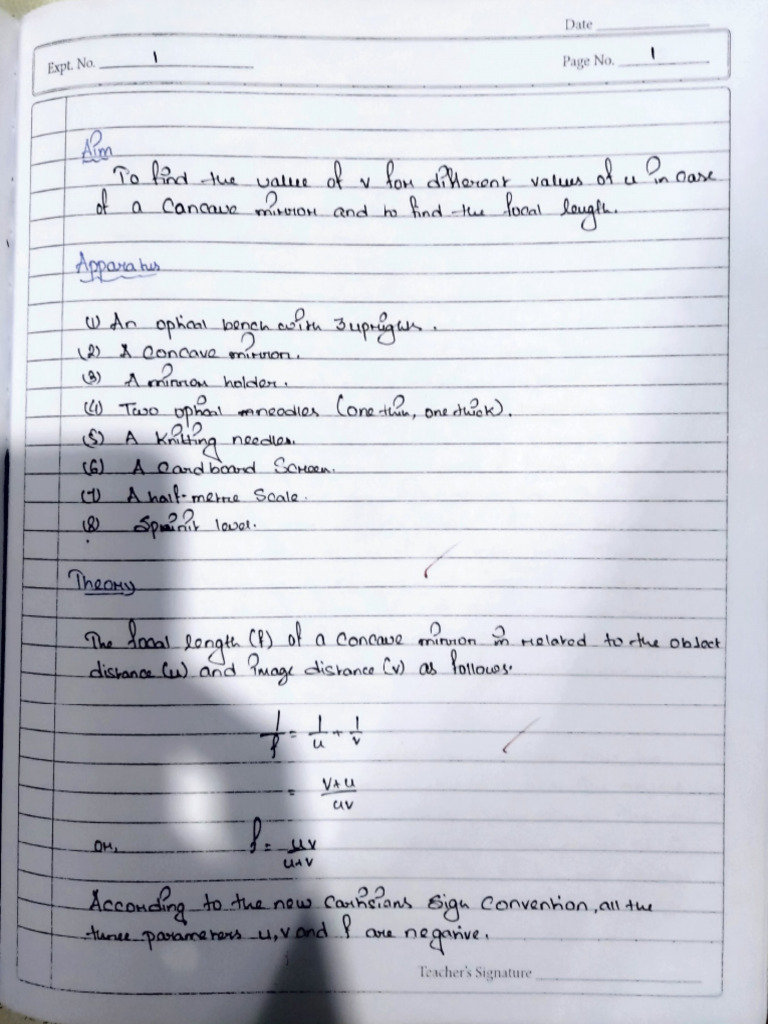 Date
Expt. No. 1
Page No. 1
Aim
To find the value of v for different values of u in case
of a Concave mirror and to find the focal length.
Apparatus
(1) An optical bench with 3 uprights.
(2) A concave mirror.
(3) A mirror holder.
(4) Two optical needles (one thin, one thick).
(5) A knitting needles.
(6) A Cardboard Screen.
(7) A half-metre Scale.
(8) Spirit level.
Theory
The focal length (f) of a concave mirror is related to the object
distance (u) and image distance (v) as follows.
1/f = 1/u + 1/v
= v+u/uv
or, f = uv/u+v
According to the new Cartesians Sign Convention, all the
three parameters u, v and f are negative.
Teacher's Signature